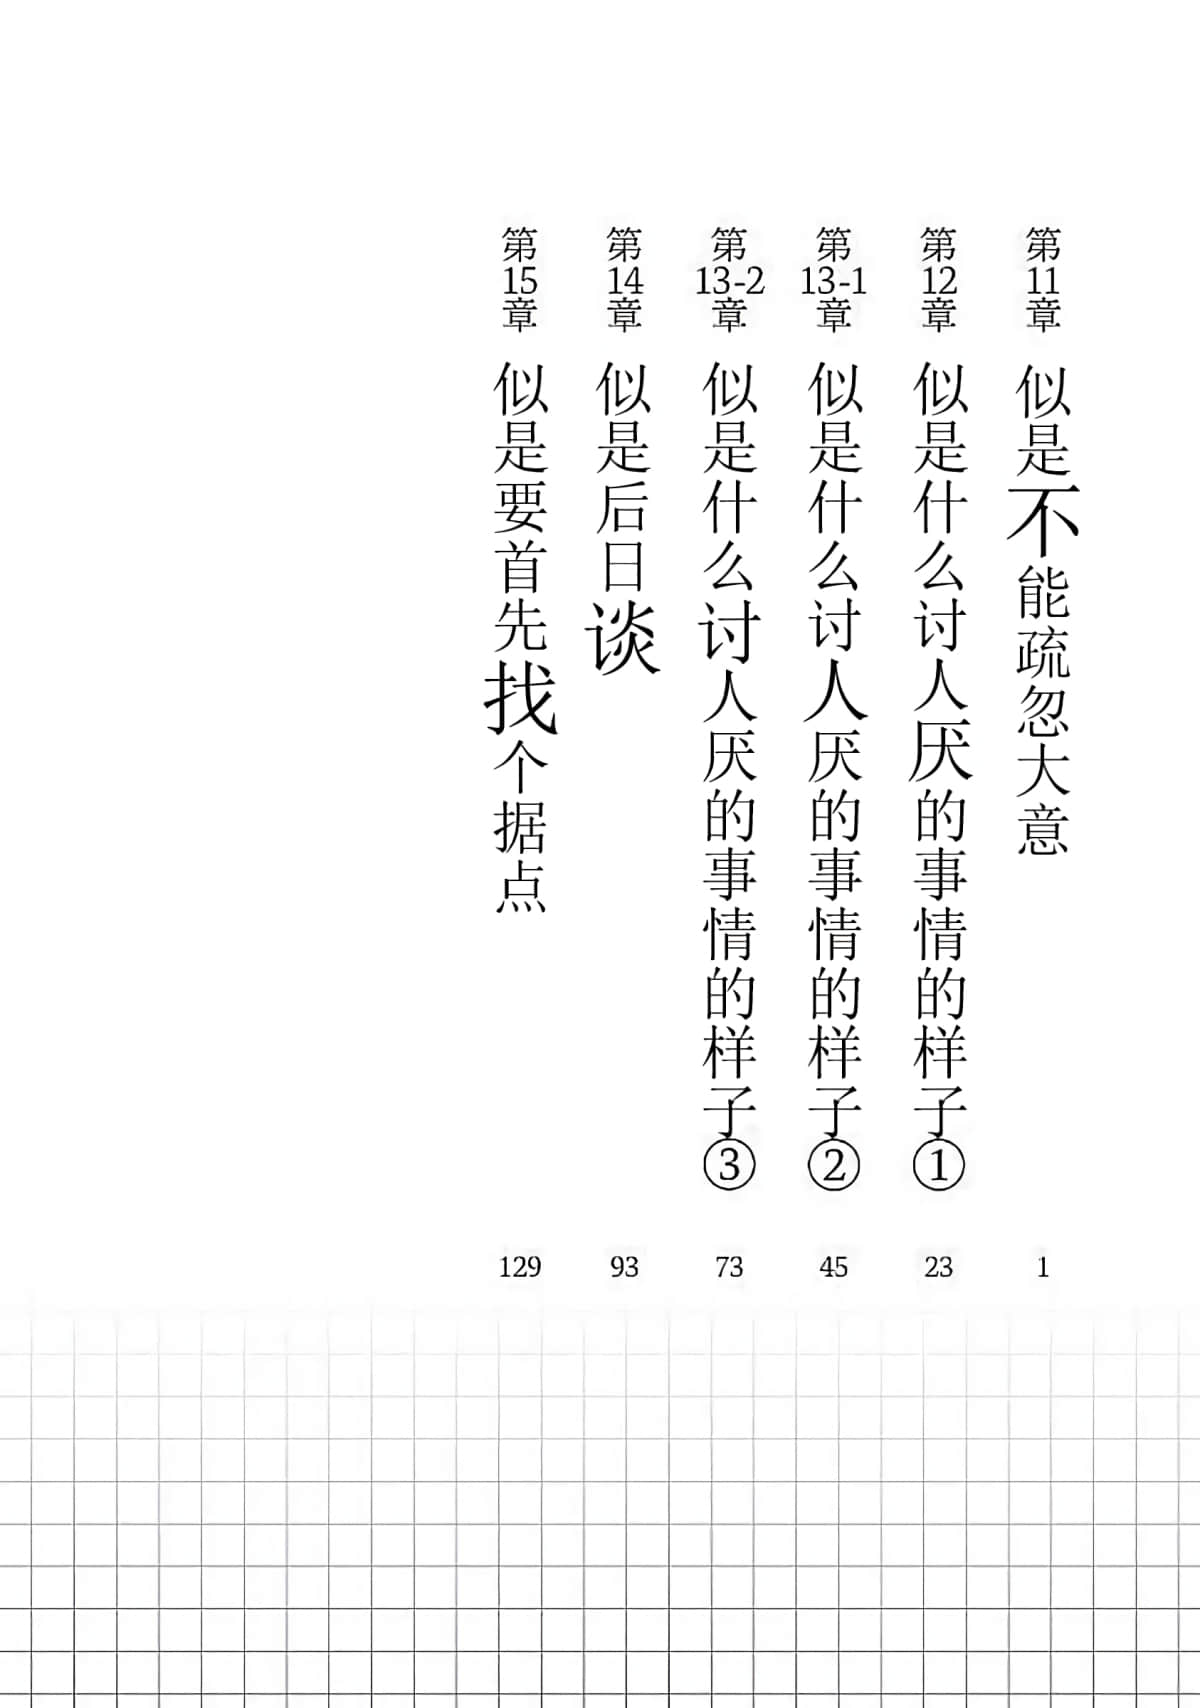 第11章 似是不能疏忽大意 1
第12章 似是什么讨人厌的事情的样子① 23
第13-1章 似是什么讨人厌的事情的样子② 45
第13-2章 似是什么讨人厌的事情的样子③ 73
第14章 似是后日谈 93
第15章 似是要首先找个据点 129